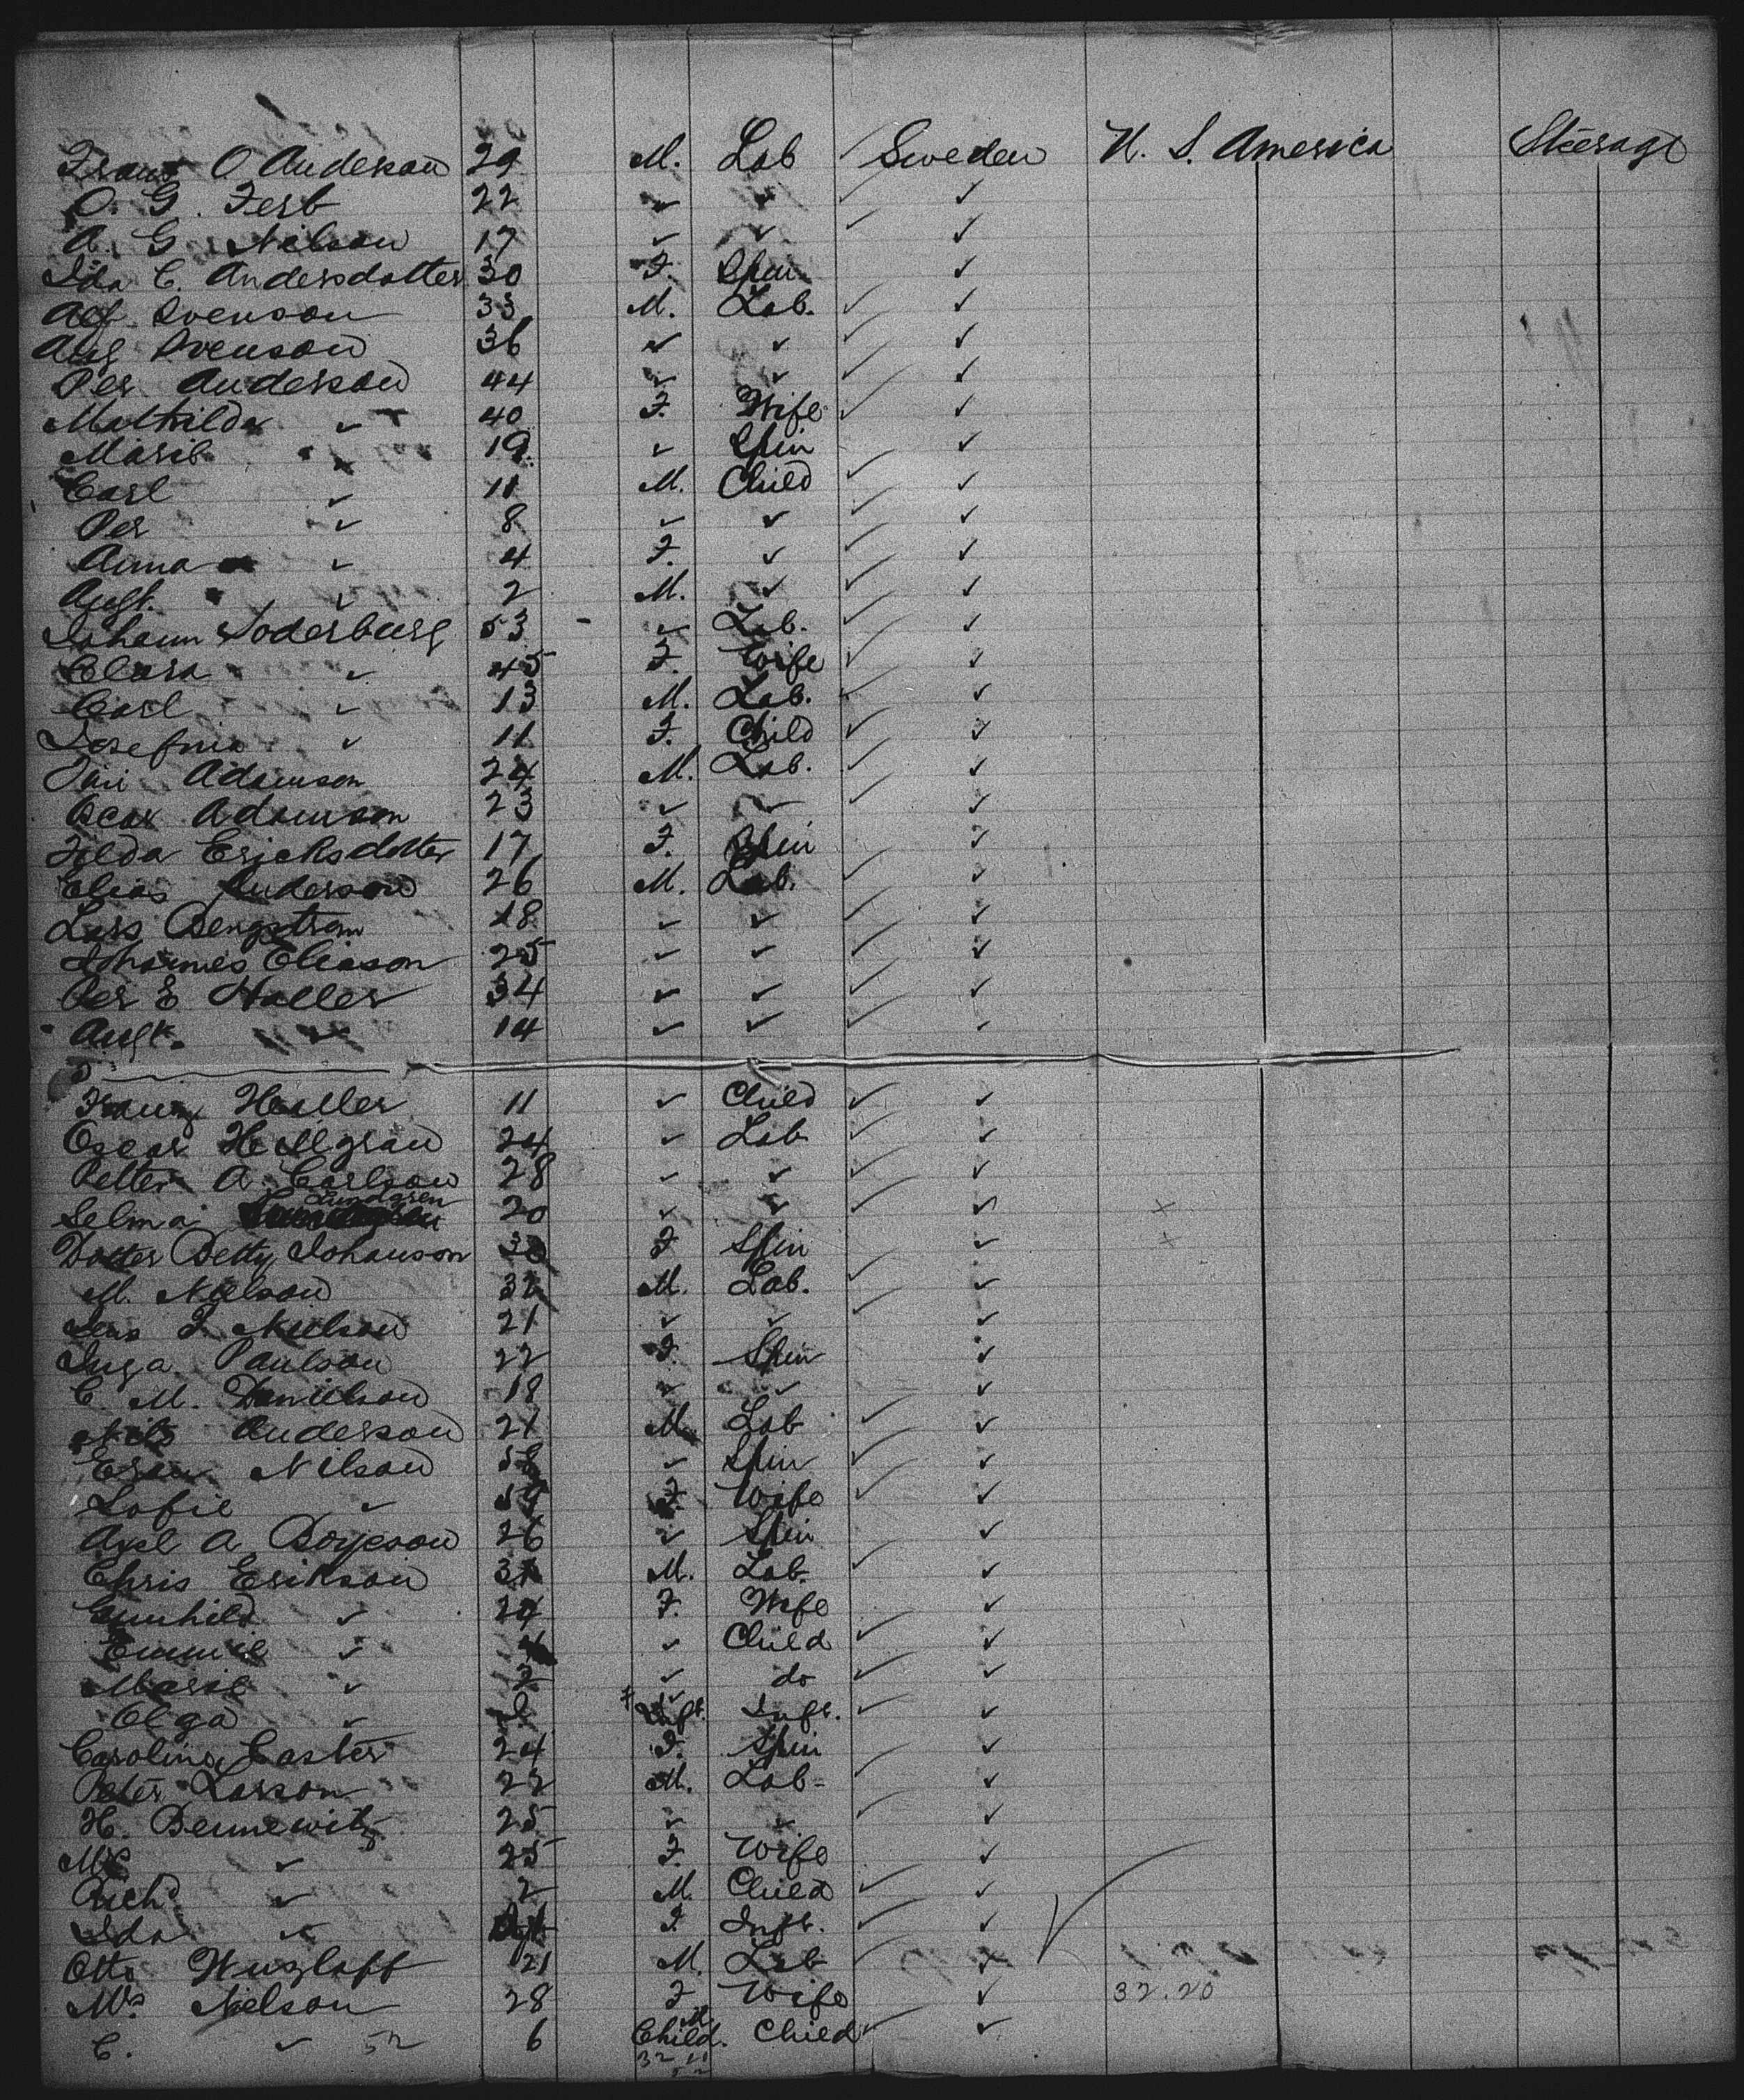 Franz O Anderson 29 M. Lab ✓ Sweden U. S. America Steerage
O. G. Ferb 22 ✓ ✓ ✓ ✓
A. G. Nilson 17 ✓ ✓ ✓ ✓
Ida C. Andersdotter 30 F. Spin ✓
Alf. Svenson 33 M. Lab. ✓ ✓
Aug Svenson 36 ✓ ✓ ✓ ✓
Per Anderson 44 ✓ ✓ ✓ ✓
Mathilda ✓ 40 F. Wife ✓ ✓
Marie ✓ 19 ✓ Spin ✓
Carl ✓ 11 M. Child ✓ ✓
Per ✓ 8 ✓ ✓ ✓ ✓
Anna ✓ 4 F. ✓ ✓ ✓
Augt. ✓ 2 M. ✓ ✓ ✓
Johann Soderburg 53 ✓ Lab. ✓ ✓
Clara ✓ 45 F. Wife ✓ ✓
Carl ✓ 13 M. Lab. ✓ ✓
Josefina ✓ 11 F. Child ✓ ✓
Adamson 24 M. Lab. ✓ ✓
Oscar Adamson 23 ✓ ✓ ✓ ✓
Tilda Ericksdotter 17 F. Spin ✓
Elias Anderson 26 M. Lab. ✓ ✓
Lars Bengstrom 18 ✓ ✓ ✓ ✓
Johannes Eliason 25 ✓ ✓ ✓ ✓
Per E Haller 34 ✓ ✓ ✓ ✓
Augt. ✓ 14 ✓ ✓ ✓ ✓
Franz Haller 11 ✓ Child ✓ ✓
Oscar Hellgran 24 ✓ Lab ✓ ✓
Petter A. Carlson 28 ✓ ✓ ✓ ✓
Selma Lundgren 20 ✓ ✓ ✓ ✓ ×
Betty Johanson F Spin ✓ ×
M. Nielson 32 M. Lab. ✓ ✓
Nielson 21 ✓ ✓ ✓ ✓
Inga Paulson 22 F. Spin ✓
C. M. Danielson 18 ✓ ✓ ✓
Nils Anderson 21 M. Lab ✓ ✓
Nilson 58 ✓ Spin ✓ ✓
Sofie ✓ F. Wife ✓ ✓
Axel A Boyeson 26 ✓ Spin ✓
Chris Erikson M. Lab. ✓ ✓
Gunhild ✓ 24 F. Wife ✓
Emmie ✓ 4 ✓ Child ✓ ✓
Marie ✓ 2 ✓ do ✓ ✓
Olga ✓ F Inft. Inft. ✓ ✓
Caroline Caster 24 F. Spin ✓
Peter Larson 22 M. Lab ✓ ✓
H. Bennewitz 25 ✓ ✓ ✓ ✓
Mrs ✓ 25 F. Wife ✓
Richd ✓ 2 M. Child ✓ ✓
Ida ✓ F. Inft. ✓ ✓
Otto Wuzlaff 21 M. Lab ✓ ✓
Mrs Nelson 28 F Wife ✓ 32.20
C. ✓ 52 6 M. Child. Child ✓ ✓
32